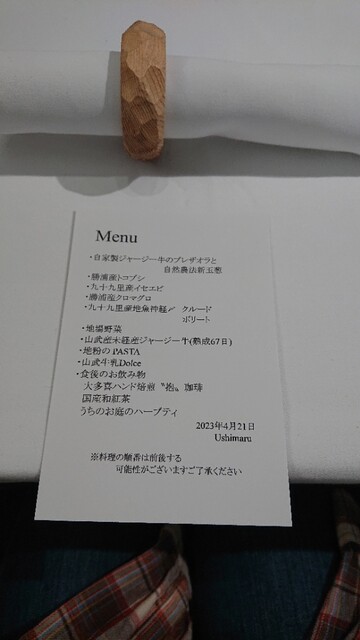 Menu
・自家製ジャージー牛のブレザオラと
自然農法新玉葱
・勝浦産トコブシ
・九十九里産イセエビ
・勝浦産クロマグロ
・九十九里産地魚神経〆 クルード
ボリート
・地場野菜
・山武産未経産ジャージー牛(熟成67日)
・地粉のPASTA
・山武牛乳Dolce
・食後のお飲み物
大多喜ハンド焙煎〝抱〟珈琲
国産和紅茶
うちのお庭のハーブティ
2023年4月21日
Ushimaru
※料理の順番は前後する
可能性がございますご了承ください